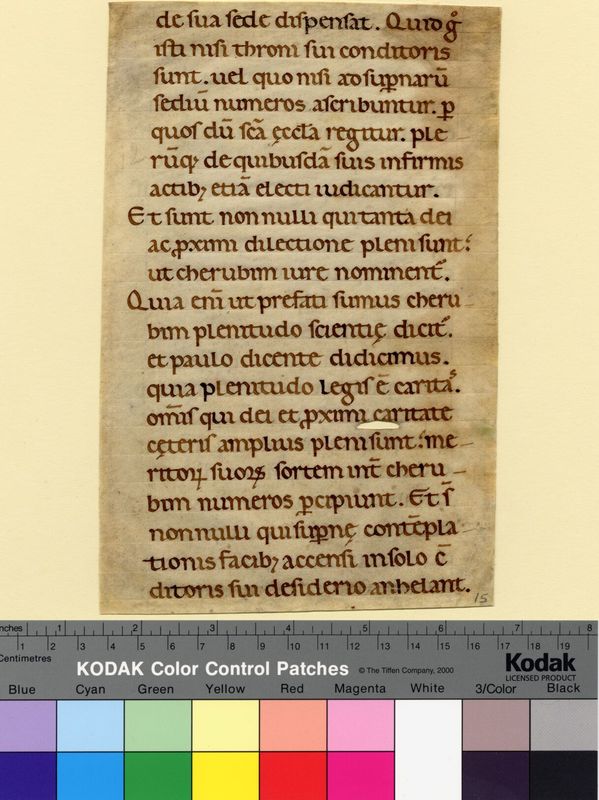 de sua sede dispensat. Quid g̊
isti nisi throni sui conditoris
sunt. uel quo nisi ad sup̱narū
sediū numeros ascribuntur. p̱
quos dū sc̄a ęccl̄a regitur. ple
rūq; de quibusdā suis infirmis
actib; etiā electi iudicantur.
Et sunt nonnulli qui tanta dei
ac ꝓximi dilectione pleni sunt:
ut cherubim iure nominent᷑.
Quia eni̅ ut prefati sumus cheru
bim plenitudo scientię dicit᷑.
et paulo dicente didicimus.
quia plenitudo legis ē carita᷒.
om̄is qui dei et ꝓximi caritate
cęteris amplius pleni sunt: me
ritoꝝ suoꝝ sortem int̄ cheru
bim numeros ꝑcipiunt. Et s̄
nonnulli qui suꝑnę contēpla
tionis facib; accensi in solo c̄
ditoris sui desiderio anhelant.
15
nches 1 2 3 4 5 6 7 8
1 2 3 4 5 6 7 8 9 10 11 12 13 14 15 16 17 18 19
Centimetres
KODAK Color Control Patches © The Tiffen Company, 2000 Kodak
LICENSED PRODUCT
Blue Cyan Green Yellow Red Magenta White 3/Color Black